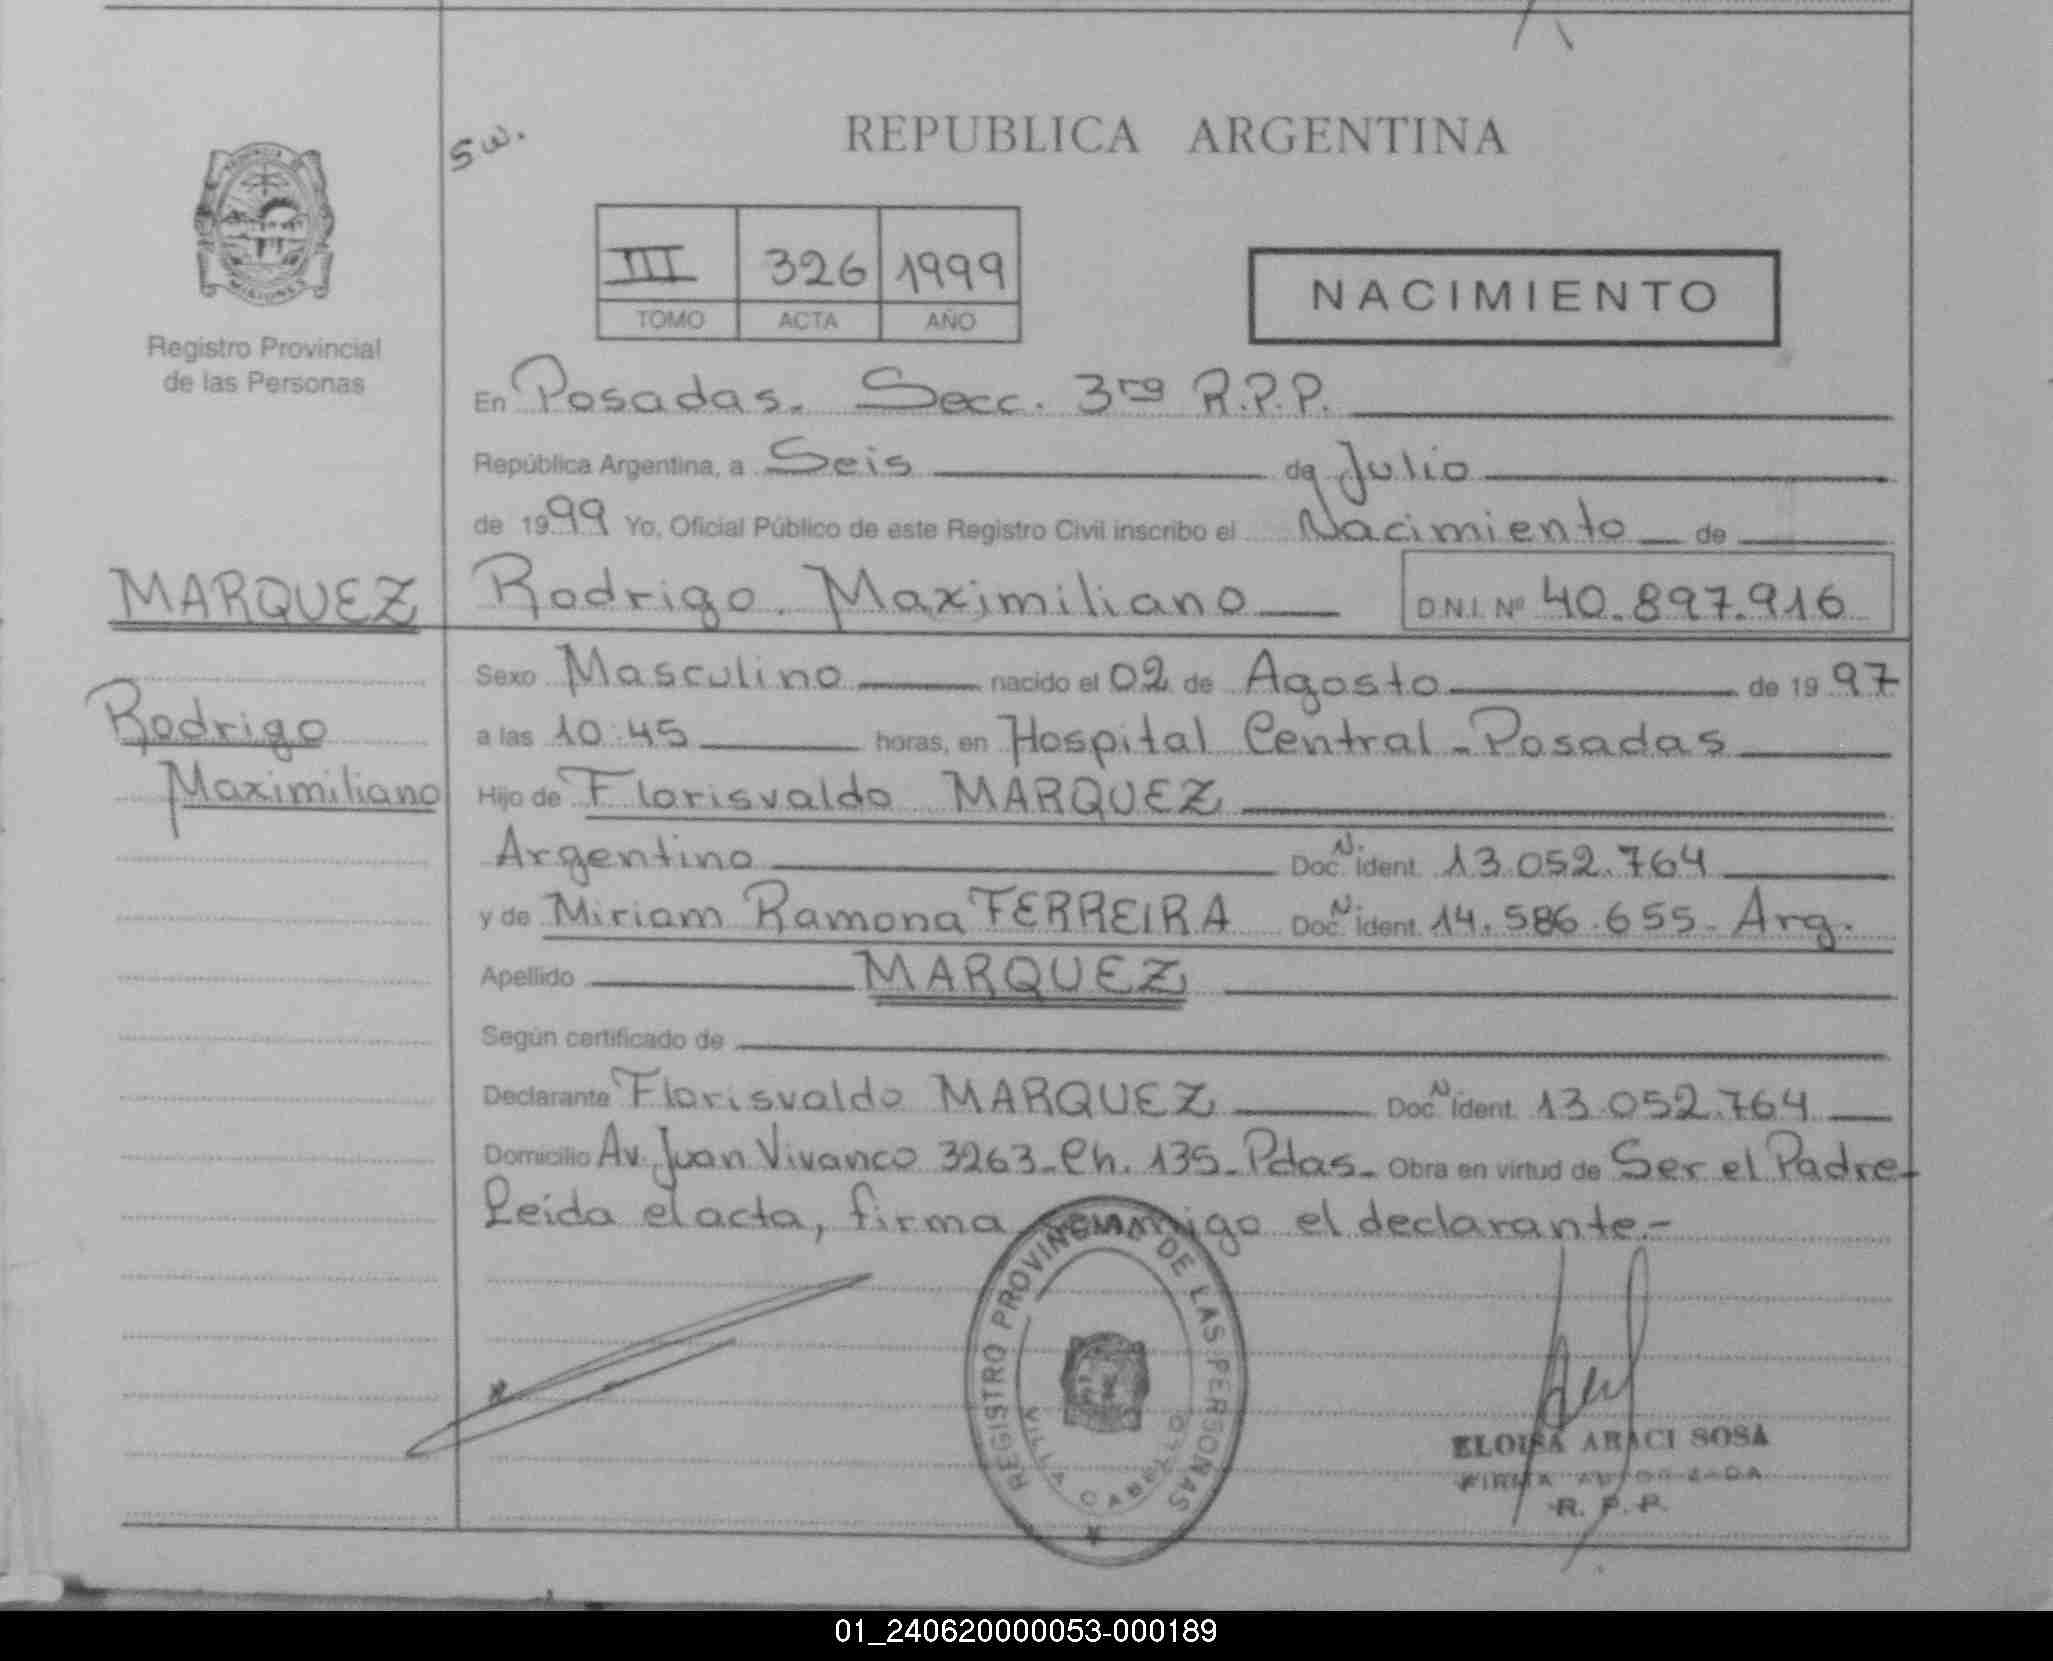 sw.
REPUBLICA ARGENTINA
MISIONES
III 326 1999
TOMO ACTA AÑO
NACIMIENTO
Registro Provincial
de las Personas
En Posadas. Secc. 3ra R.P.P.
República Argentina, a Seis de Julio
de 1999 Yo, Oficial Público de este Registro Civil inscribo el Nacimiento de
MARQUEZ Rodrigo Maximiliano D.N.I. Nº 40.897.916
Sexo Masculino nacido el 02 de Agosto de 1997
Rodrigo
a las 10:45 horas, en Hospital Central - Posadas
Maximiliano
Hijo de Florisvaldo MARQUEZ
Argentino Doc. N. ident. 13.052.764
y de Miriam Ramona FERREIRA Doc. N. ident. 14.586.655- Arg.
Apellido MARQUEZ
Según certificado de
Declarante Florisvaldo MARQUEZ Doc. N. ident. 13.052.764
Domicilio Av. Juan Vivanco 3263- Ch. 135- Pdas- Obra en virtud de Ser el Padre-
Leida el acta, firma conmigo el declarante.-
REGISTRO PROVINCIAL DE LAS PERSONAS
VILLA CABELLO
ELOISA ARACI SOSA
FIRMA AUTORIZADA
R. P. P.
01_240620000053-000189